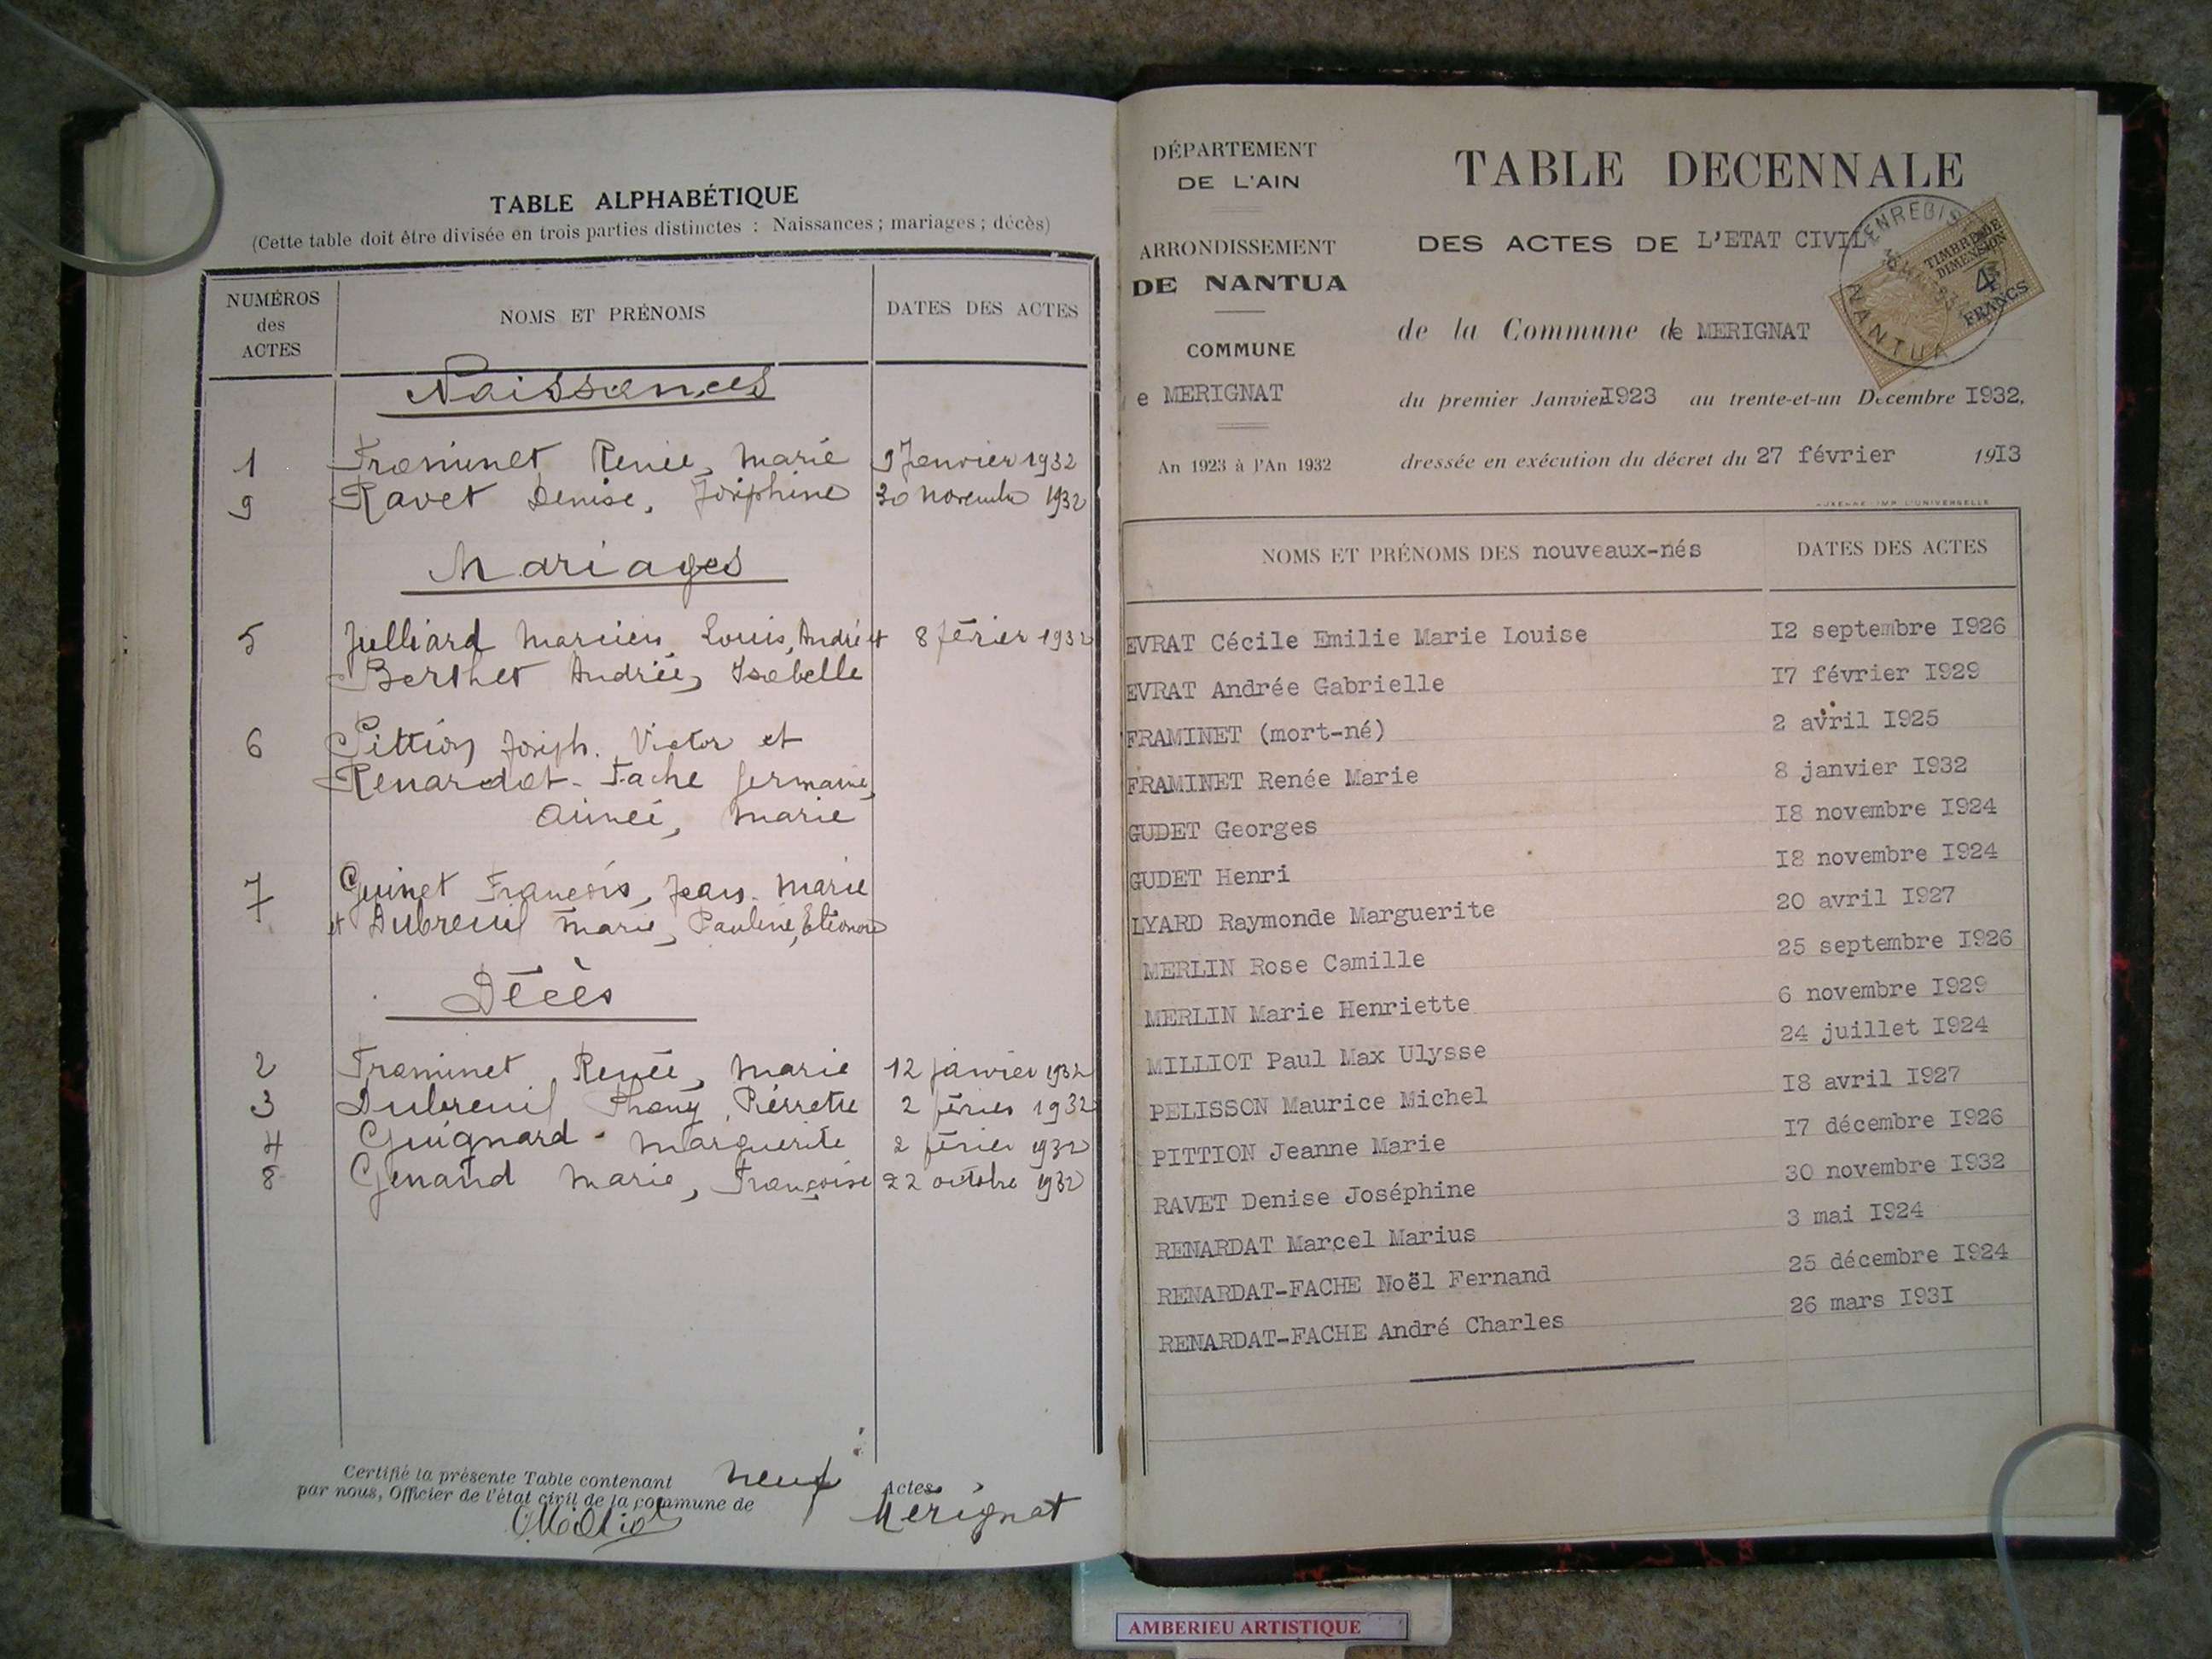 TABLE ALPHABÉTIQUE
(Cette table doit être divisée en trois parties distinctes : Naissances ; mariages ; décès)
NUMÉROS des ACTES
NOMS ET PRÉNOMS
DATES DES ACTES
Naissances
1 Framinet Renée, Marie 9 Janvier 1932
9 Ravet Denise, Joséphine 30 novembre 1932
Mariages
5 Julliard Marcien, Louis, André et 8 février 1932
Berthet Andrée, Isabelle
6 Pittion Joseph. Victor et
Renardat-Fache Germaine,
Aimée, Marie
7 Guinet François, Jean-Marie
et Dubreuil Marie, Pauline, Eléonore
Décès
2 Framinet, Renée, Marie 12 janvier 1932
3 Dubreuil Phany, Pierrette 2 février 1932
4 Guignard Marguerite 2 février 1932
8 Genand Marie, Françoise 22 octobre 1932
Certifié la présente Table contenant neuf Actes
par nous, Officier de l'état civil de la commune de Mérignat
DÉPARTEMENT
DE L'AIN
ARRONDISSEMENT
DE NANTUA
COMMUNE
e MERIGNAT
An 1923 à l'An 1932
TABLE DECENNALE
DES ACTES DE L'ETAT CIVIL
de la Commune de MERIGNAT
du premier Janvier I923 au trente-et-un Décembre I932.
dressée en exécution du décret du 27 février 19I3
ENREGIS
NANTUA
TIMBRE DE
DIMENSION
4
FRANCS
NOMS ET PRÉNOMS DES nouveaux-nés
DATES DES ACTES
EVRAT Cécile Emilie Marie Louise I2 septembre I926
EVRAT Andrée Gabrielle I7 février I929
FRAMINET (mort-né) 2 avril I925
FRAMINET Renée Marie 8 janvier I932
GUDET Georges I8 novembre I924
GUDET Henri I8 novembre I924
LYARD Raymonde Marguerite 20 avril I927
MERLIN Rose Camille 25 septembre I926
MERLIN Marie Henriette 6 novembre I929
MILLIOT Paul Max Ulysse 24 juillet I924
PELISSON Maurice Michel I8 avril I927
PITTION Jeanne Marie I7 décembre I926
RAVET Denise Joséphine 30 novembre I932
RENARDAT Marcel Marius 3 mai I924
RENARDAT-FACHE Noël Fernand 25 décembre I924
RENARDAT-FACHE André Charles 26 mars I93I
AMBERIEU ARTISTIQUE